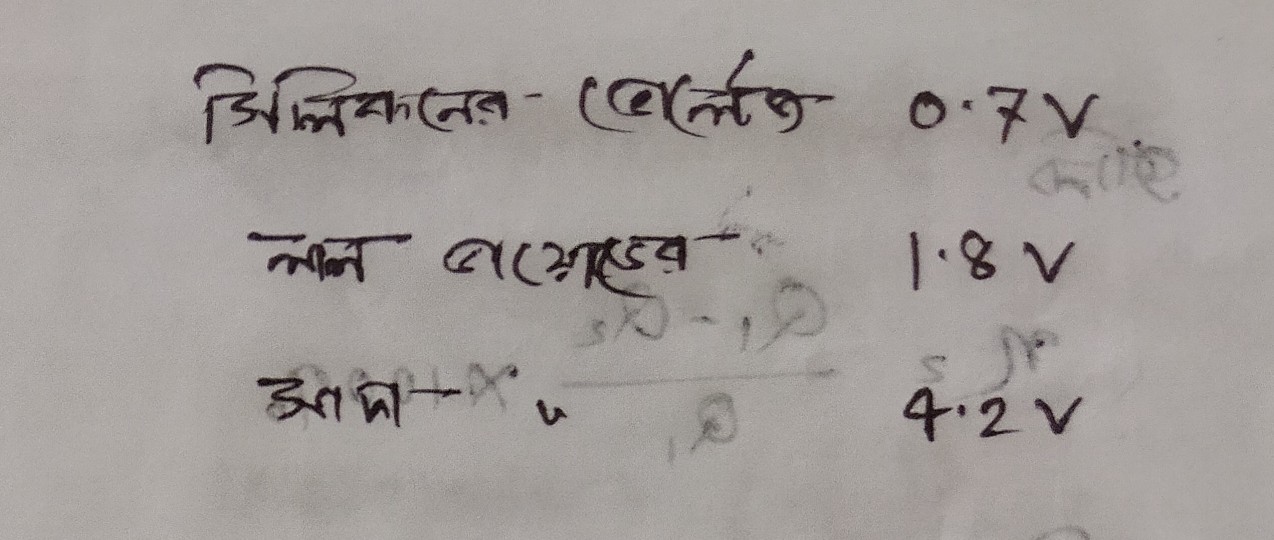 সিলিকনের ভোল্টেজ 0.7V
লাল ডায়োডের 1.8 V
সাদা " 4.2 V